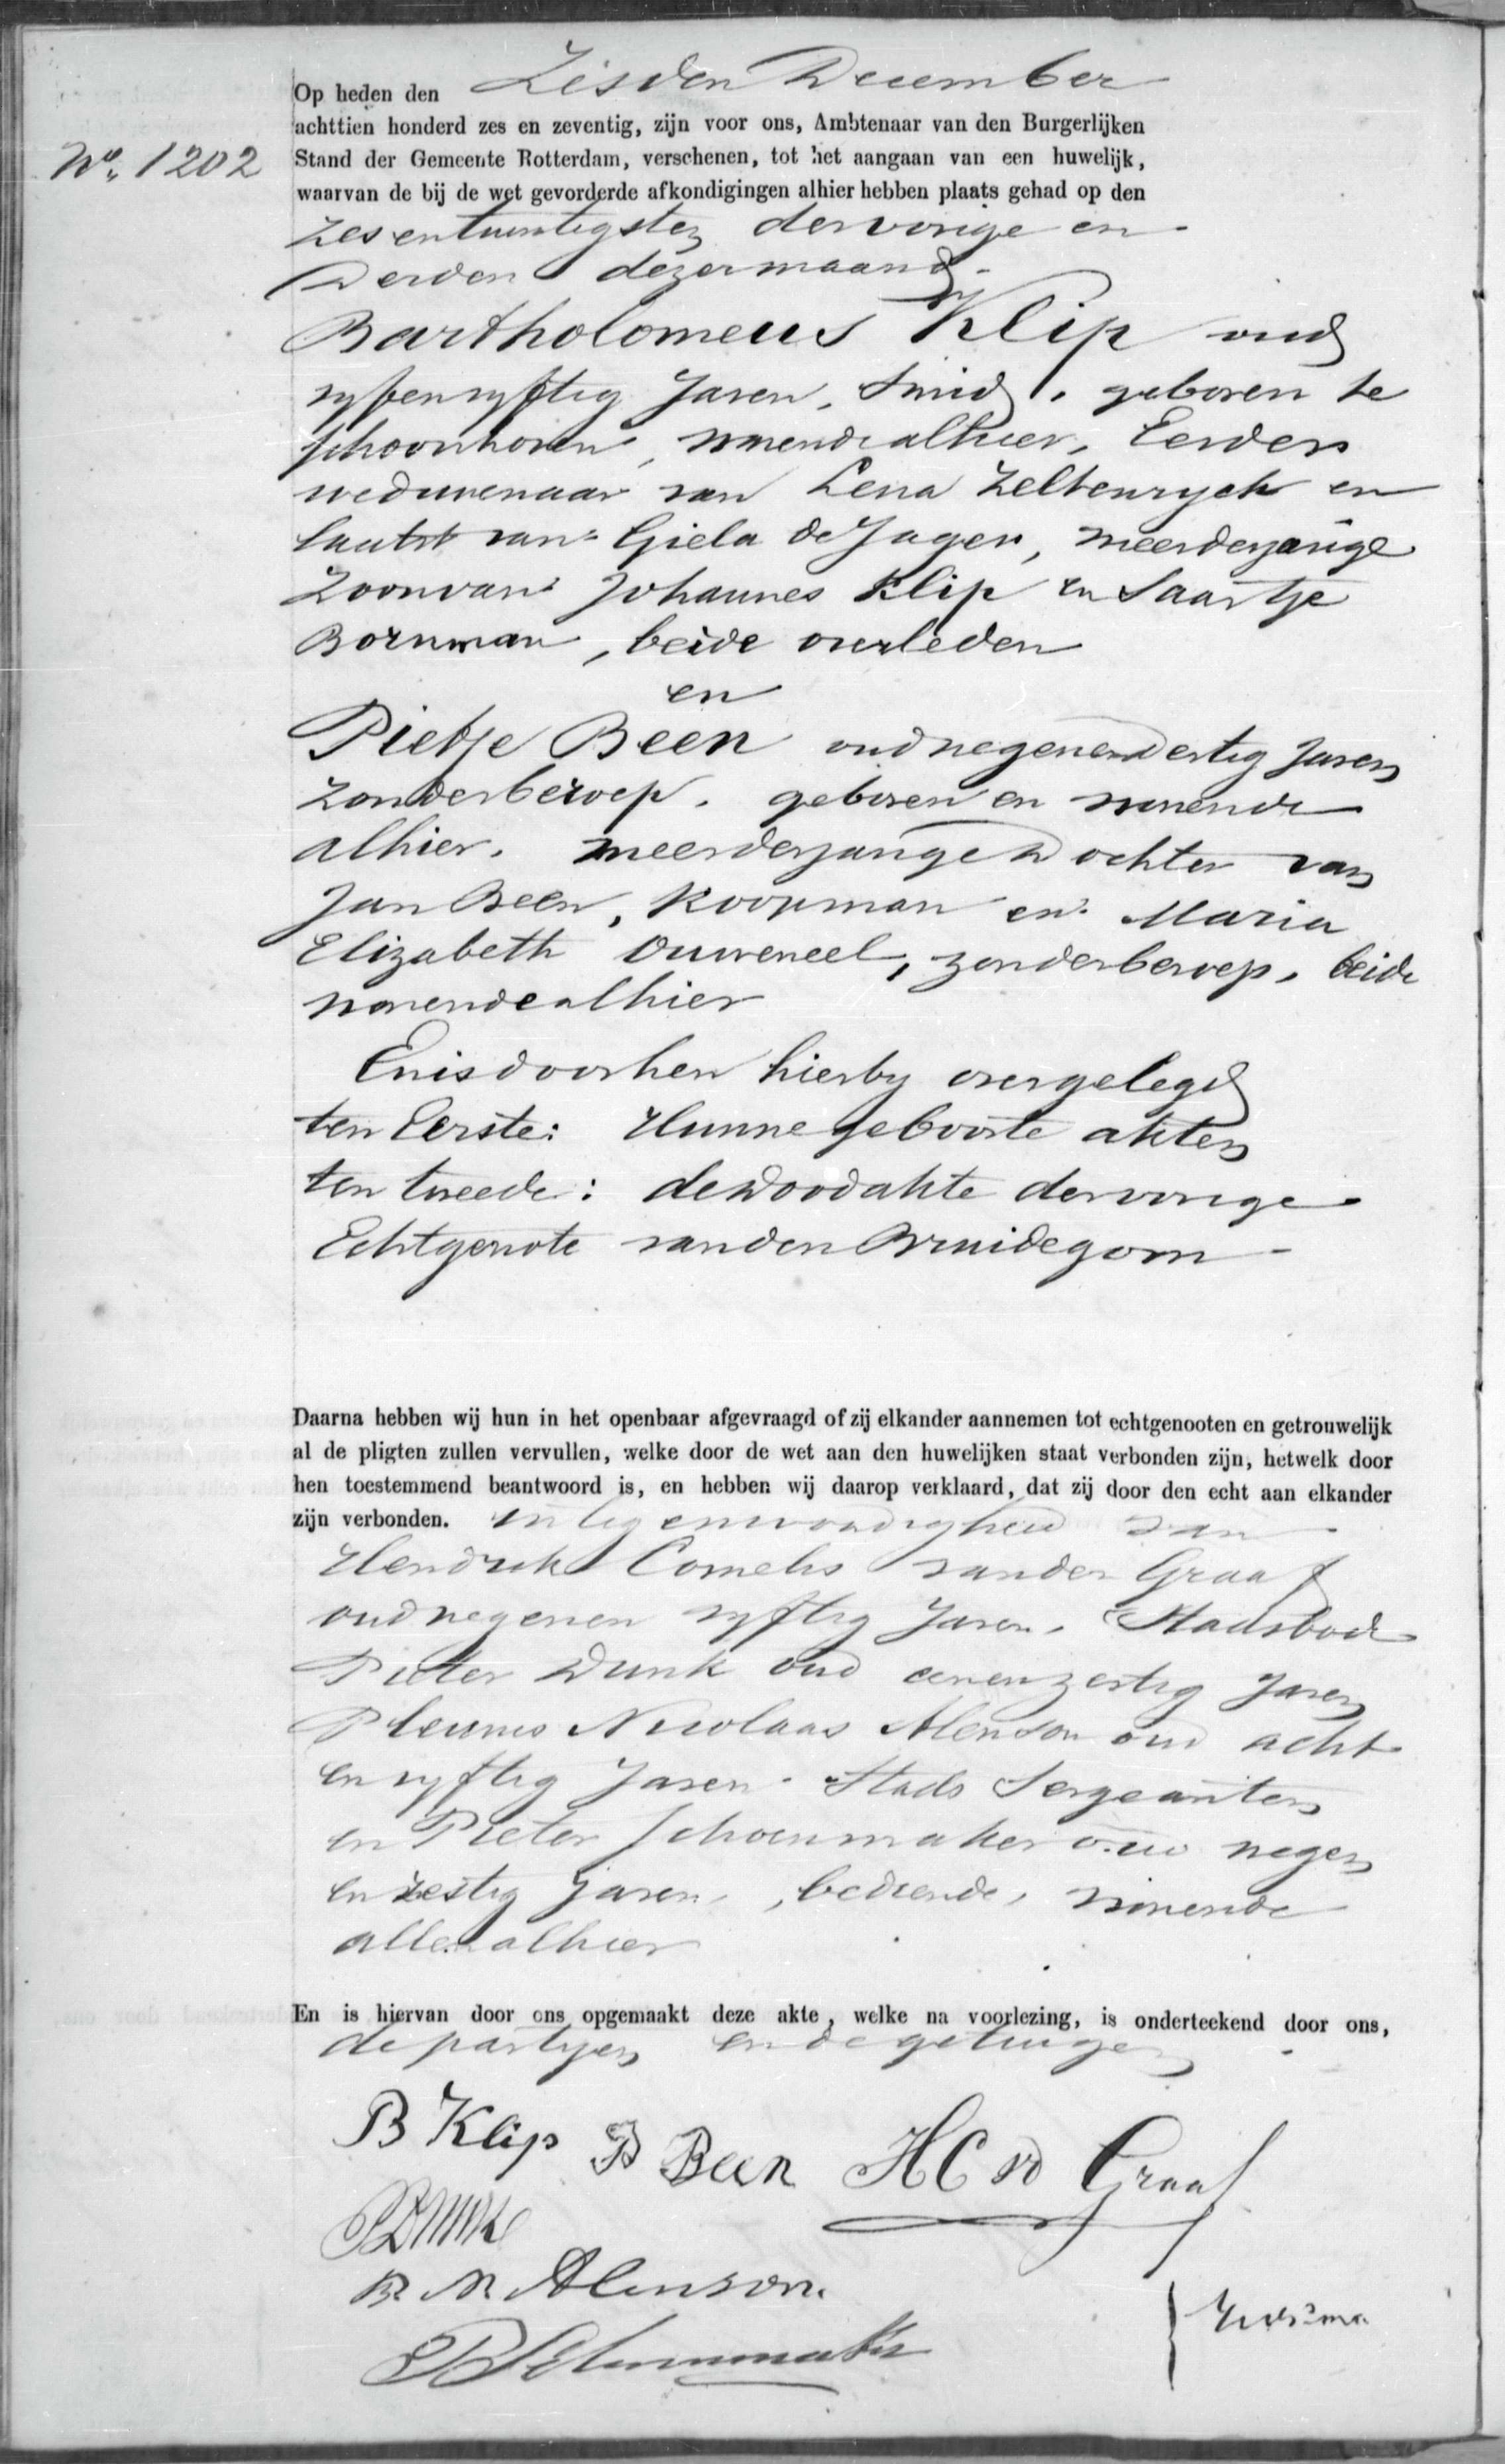 Op heden den Zesden December
achttien honderd zes en zeventig, zijn voor ons, Ambtenaar van den Burgerlijken
No. 1202 Stand der Gemeente Rotterdam, verschenen, tot het aangaan van een huwelijk,
waarvan de bij de wet gevorderde afkondigingen alhier hebben plaats gehad op den
zesentwintigsten der vorige en
Derden dezer maand.
Bartholomeus Klip oud
vyfenvyftig Jaren, Smid, geboren te
Schoonhoven, wonende alhier, Eerder
weduwenaar van Lena Zeltenrych en
laatst van Giela de Jager, meerderjarige
Zoon van Johannes Klip en Saartje
Bornman, beide overleden
en
Pietje Been oud negenendertig Jaren
zonder beroep, geboren en wonende
alhier, meerderjarige Dochter van
Jan Been, Koopman en Maria
Elizabeth Ouweneel, zonder beroep, beide
wonende alhier
En is door hen hierby overgelegd
ten Eerste: Hunne geboorte akten
ten tweede: de Doodakte der vorige
Echtgenote van den Bruidegom
Daarna hebben wij hun in het openbaar afgevraagd of zij elkander aannemen tot echtgenooten en getrouwelijk
al de pligten zullen vervullen, welke door de wet aan den huwelijken staat verbonden zijn, hetwelk door
hen toestemmend beantwoord is, en hebben wij daarop verklaard, dat zij door den echt aan elkander
zijn verbonden. in tegenwoordigheid van
Hendrik Cornelis van der Graaf
oud negenen vyftig Jaren, Stadsbode
Pieter Dunk oud eenenzestig Jaren
Pleunis Nicolaas Alenson oud acht
en vyftig Jaren Stads Sergeanten
en Pieter Schoenmaker oud negen
en zestig Jaren, bediende, wonende
allen alhier
En is hiervan door ons opgemaakt deze akte, welke na voorlezing, is onderteekend door ons,
de partyen en de getuigen
B Klip P Been H C vd Graaf
P Dunk
P. N. Alenson.
P Schoenmaker